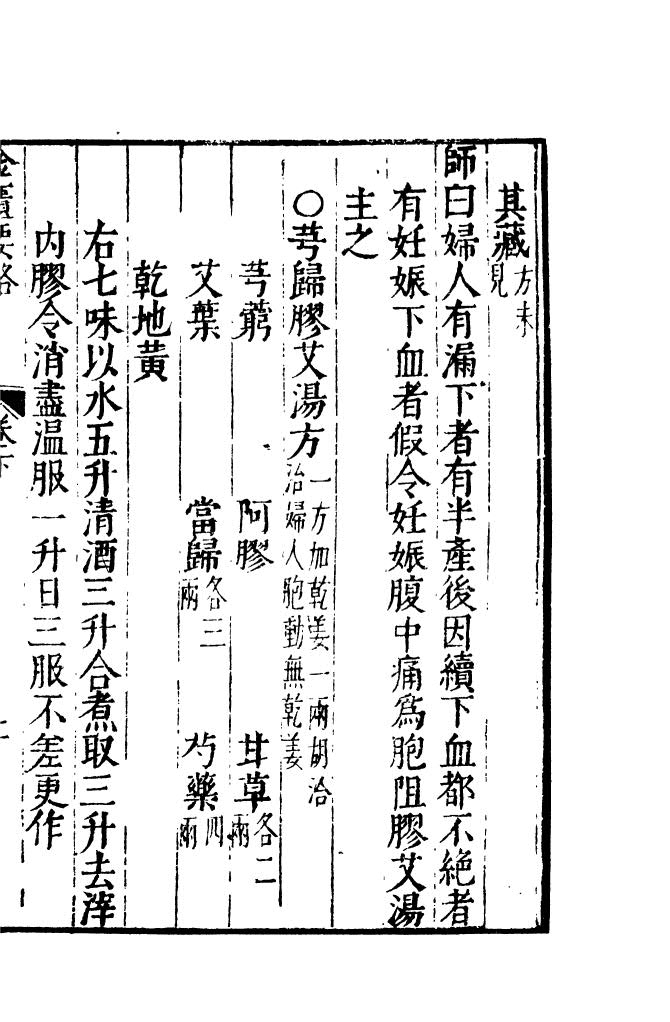 其藏方未見
師曰婦人有漏下者有半產後因續下血都不絕者
有妊娠下血者假令妊娠腹中痛爲胞阻膠艾湯
主之
○芎歸膠艾湯方一方加乾姜一兩胡洽治婦人胞動無乾姜
芎藭　阿膠　甘草各二兩
艾葉　當歸各三兩　芍藥四兩
乾地黃
右七味以水五升清酒三升合煮取三升去滓
内膠令消盡溫服一升日三服不差更作
金匱要略　卷下